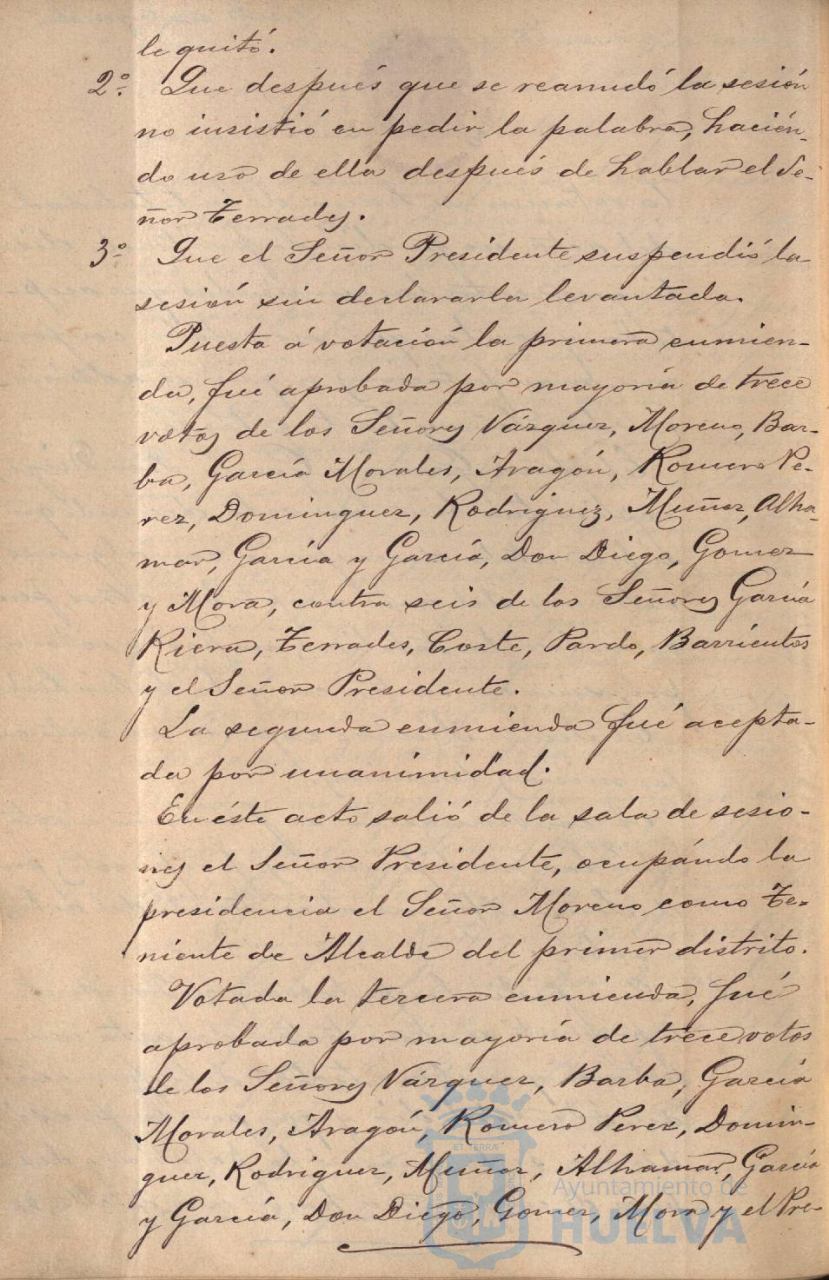 le quitó.
2º. Que después que se reanudó la sesión
no insistió en pedir la palabra, hacien-
do uso de ella después de hablar el Se-
ñor Terrades.
3º Que el Señor Presidente suspendió la
sesión sin declararla levantada.
Puesta á votación la primera enmien-
da, fué aprobada por mayoría de trece
votos de los Señores Vázquez, Moreno, Bar-
ba, García Morales, Aragón, Romero Pe-
rez, Dominguez, Rodriguez, Muñoz, Alha-
mar, García y García, Don Diego, Gomez
y Mora, contra seis de los Señores García
Riera, Terrades, Coste, Pardo, Barrientos
y el Señor Presidente.
La segunda enmienda fué acepta-
da por unanimidad.
En éste acto salió de la sala de sesio-
nes el Señor Presidente, ocupándo la
presidencia el Señor Moreno como Te-
niente de Alcalde del primer distrito.
Votada la tercera enmienda, fué
aprobada por mayoría de trece votos
de los Señores Vázquez, Barba, García
Morales, Aragón, Romero Perez, Domin-
guez, Rodriguez, Muñoz, Alhamar, García
y García, Don Diego, Gomez, Mora y el Pre-
Ayuntamiento de
HUELVA